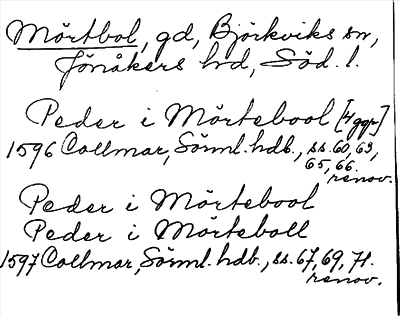 Mörtbol, gd, Björkviks sn,
Jönåkers hd, Söd. l.
Peder i Mörtebool [4 ggr]
1596 Collmar, Sörml. hdb., ss. 60, 63,
65, 66.
renov.
Peder i Mörtebool
Peder i Mörteboll
1597 Collmar, Sörml. hdb., ss. 67, 69, 71.
renov.